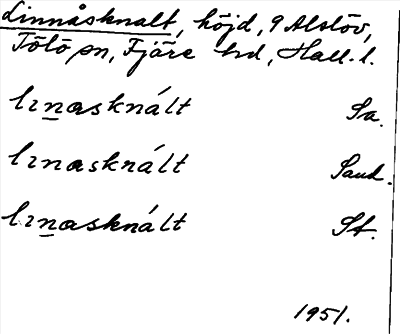 Linnåsknalt, höjd, 9 Alslöv,
Tölö sn, Fjäre hd, Hall. l.
lınasknált Sa.
lınasknált Sand.
lınasknált St.
1951.